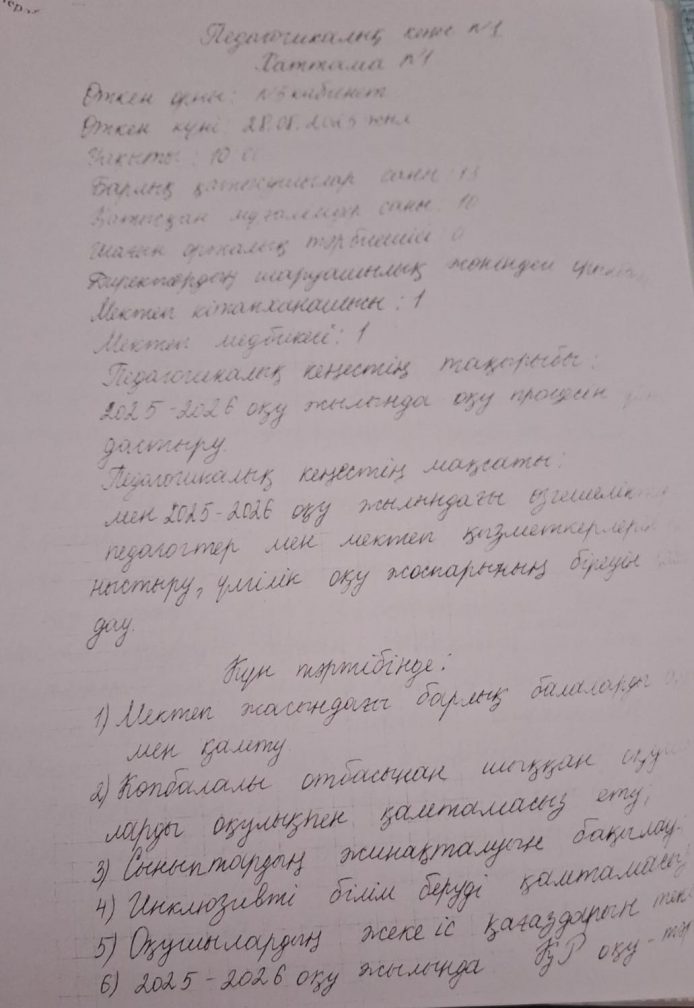 Педагогикалық кеңес №1
Хаттама №1
Өткен орны: №5 кабинет
Өткен күні: 28.08.2025 жыл
Уақыты: 10
Барлық қатысушылар саны: 13
Қатысқан мұғалімдер саны: 10
Шағын орталық тәрбиешісі
Директордың шаруашылық жөніндегі
Мектеп кітапханашысы: 1
Мектеп медбикесі: 1
Педагогикалық кеңестің тақырыбы:
2025-2026 оқу жылында оқу процесін
дастыру.
Педагогикалық кеңестің мақсаты:
мен 2025-2026 оқу жылындағы өзгешелікте
педагогтер мен мектеп қызметкерлерін
ныстыру, үлгілік оқу жоспарының біреуін
дау.
Күн тәртібінде:
1) Мектеп жасындағы барлық балаларды
мен қамту.
2) Көпбалалы отбасынан шыққан оқушы
ларды оқулықпен қамтамасыз ету;
3) Сыныптардың жинақталуын бақылау.
4) Инклюзивті білім беруді қамтамасыз
5) Оқушылардың жеке іс қағаздарын тек
6) 2025-2026 оқу жылында ҚР оқу-